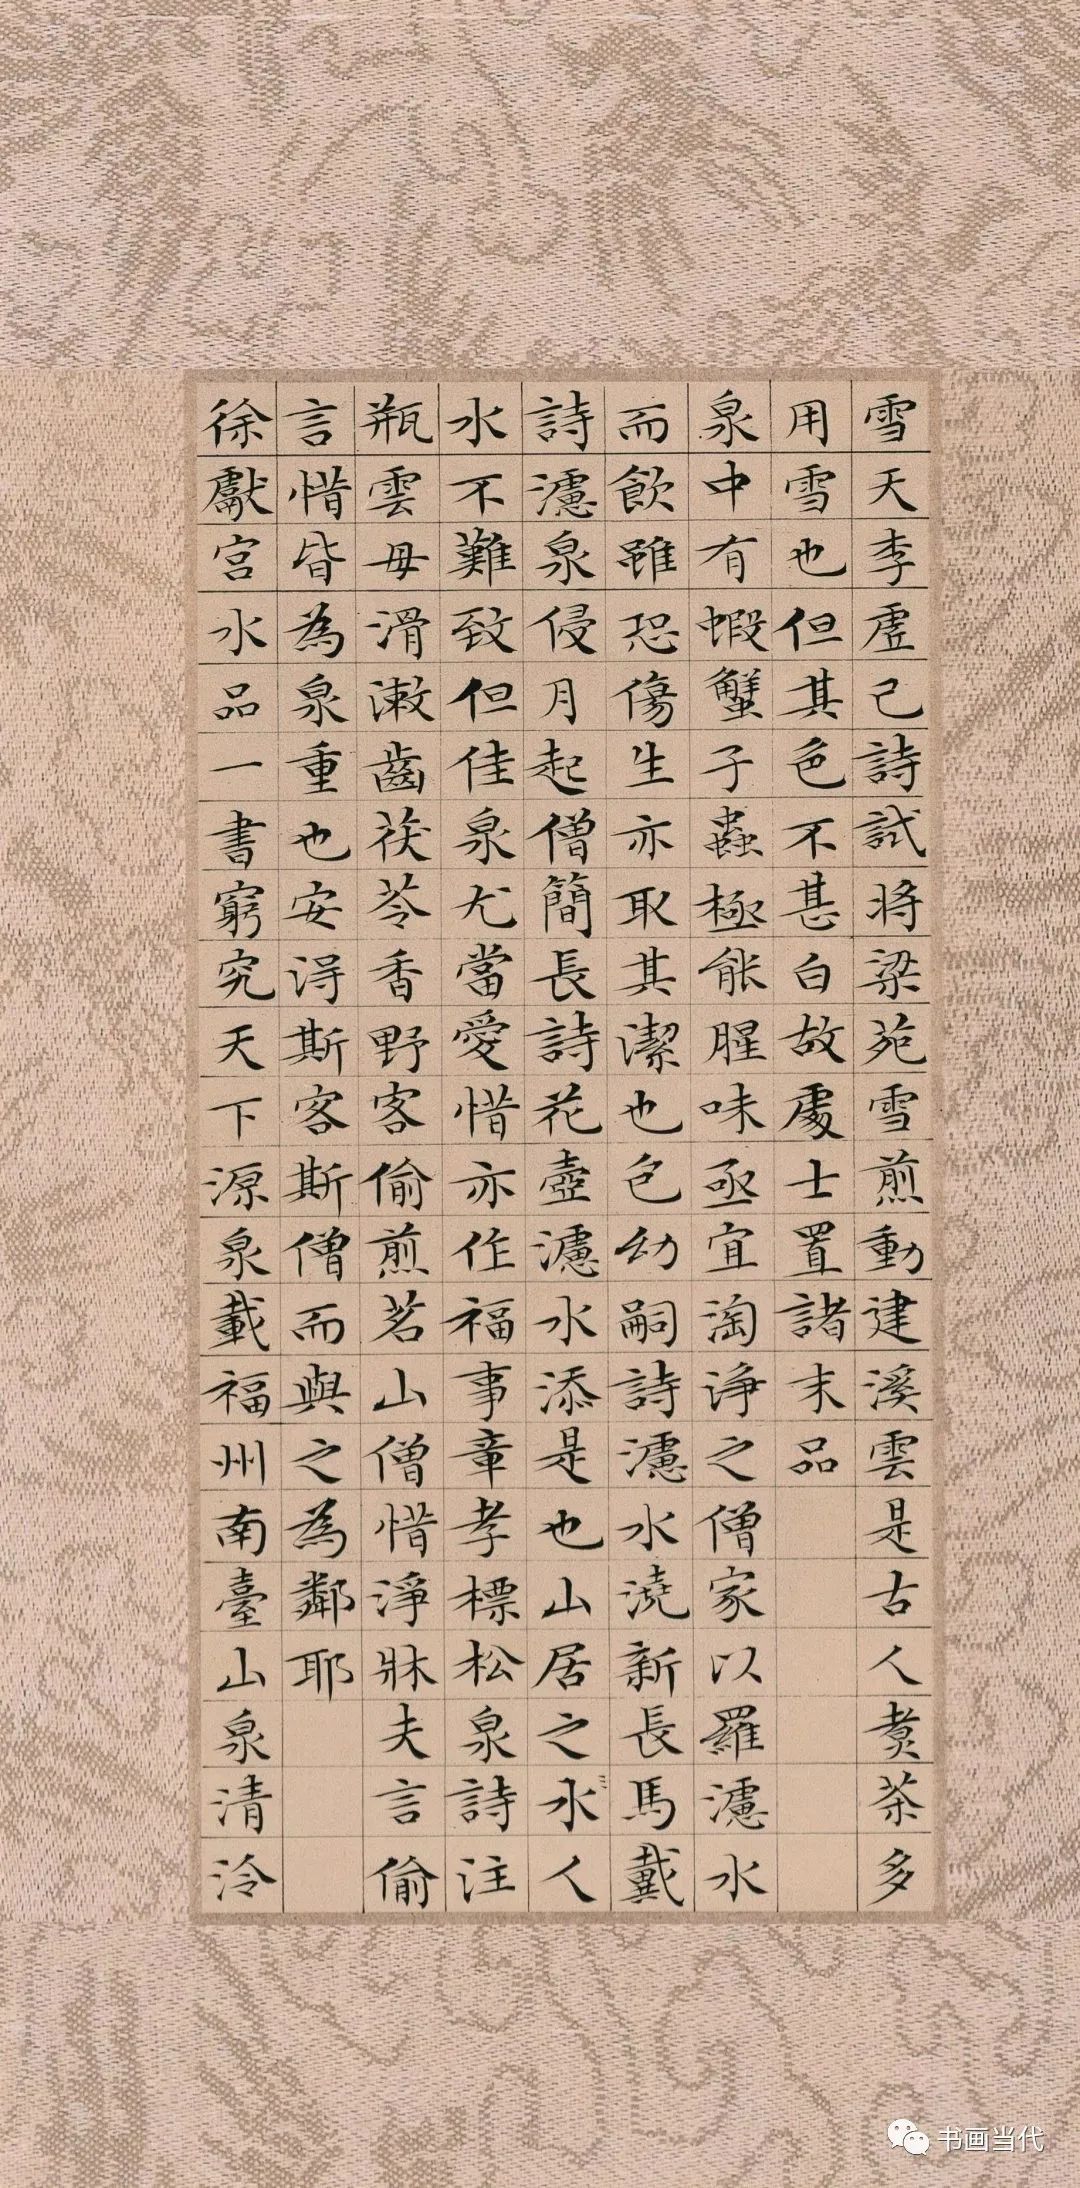 雪天李虛己詩試將梁苑雪煎動建溪雲是古人煑茶多
用雪也但其色不甚白故處士置諸末品
泉中有蝦蟹子蟲極能腥味亟宜淘淨之僧家以羅濾水
而飲雖恐傷生亦取其潔也包幼嗣詩濾水澆新長馬戴
詩濾泉侵月起僧簡長詩花壺濾水添是也山居之水人
水不難致但佳泉尤當愛惜亦作福事章孝標松泉詩注
瓶雲母滑漱齒茯苓香野客偷煎茗山僧惜淨牀夫言偷
言惜皆為泉重也安得斯客斯僧而與之為鄰耶
徐獻宮水品一書窮究天下源泉載福州南臺山泉清泠
书画当代